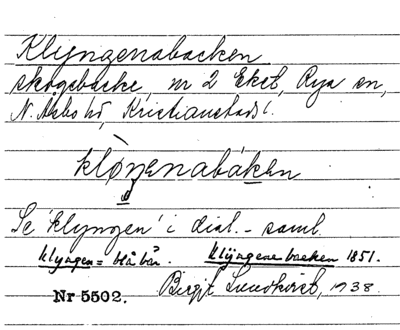 Klyngenabacken
skogsbacke, nr 2 Eket, Rya sn,
N. Åsbo hd, Kristianstads l.
kløŋenabáken
Se 'klyngen' i dial.-saml.
Klyngen = blåbär. Klÿngene backen 1851.
Nr 5502. Birgit Lundkvist, 1938.